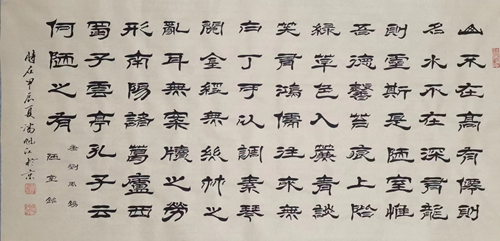 山不在高有僊則
名水不在深有龍
則靈斯是陋室惟
吾德馨苔痕上階
綠草色入簾青談
笑有鴻儒往来無
白丁可以調素琴
閱金經無絲竹之
亂耳無案牘之勞
形南陽諸葛廬西
蜀子雲亭孔子云
何陋之有
唐劉禹錫
陋室銘
時在甲辰夏潘江於京